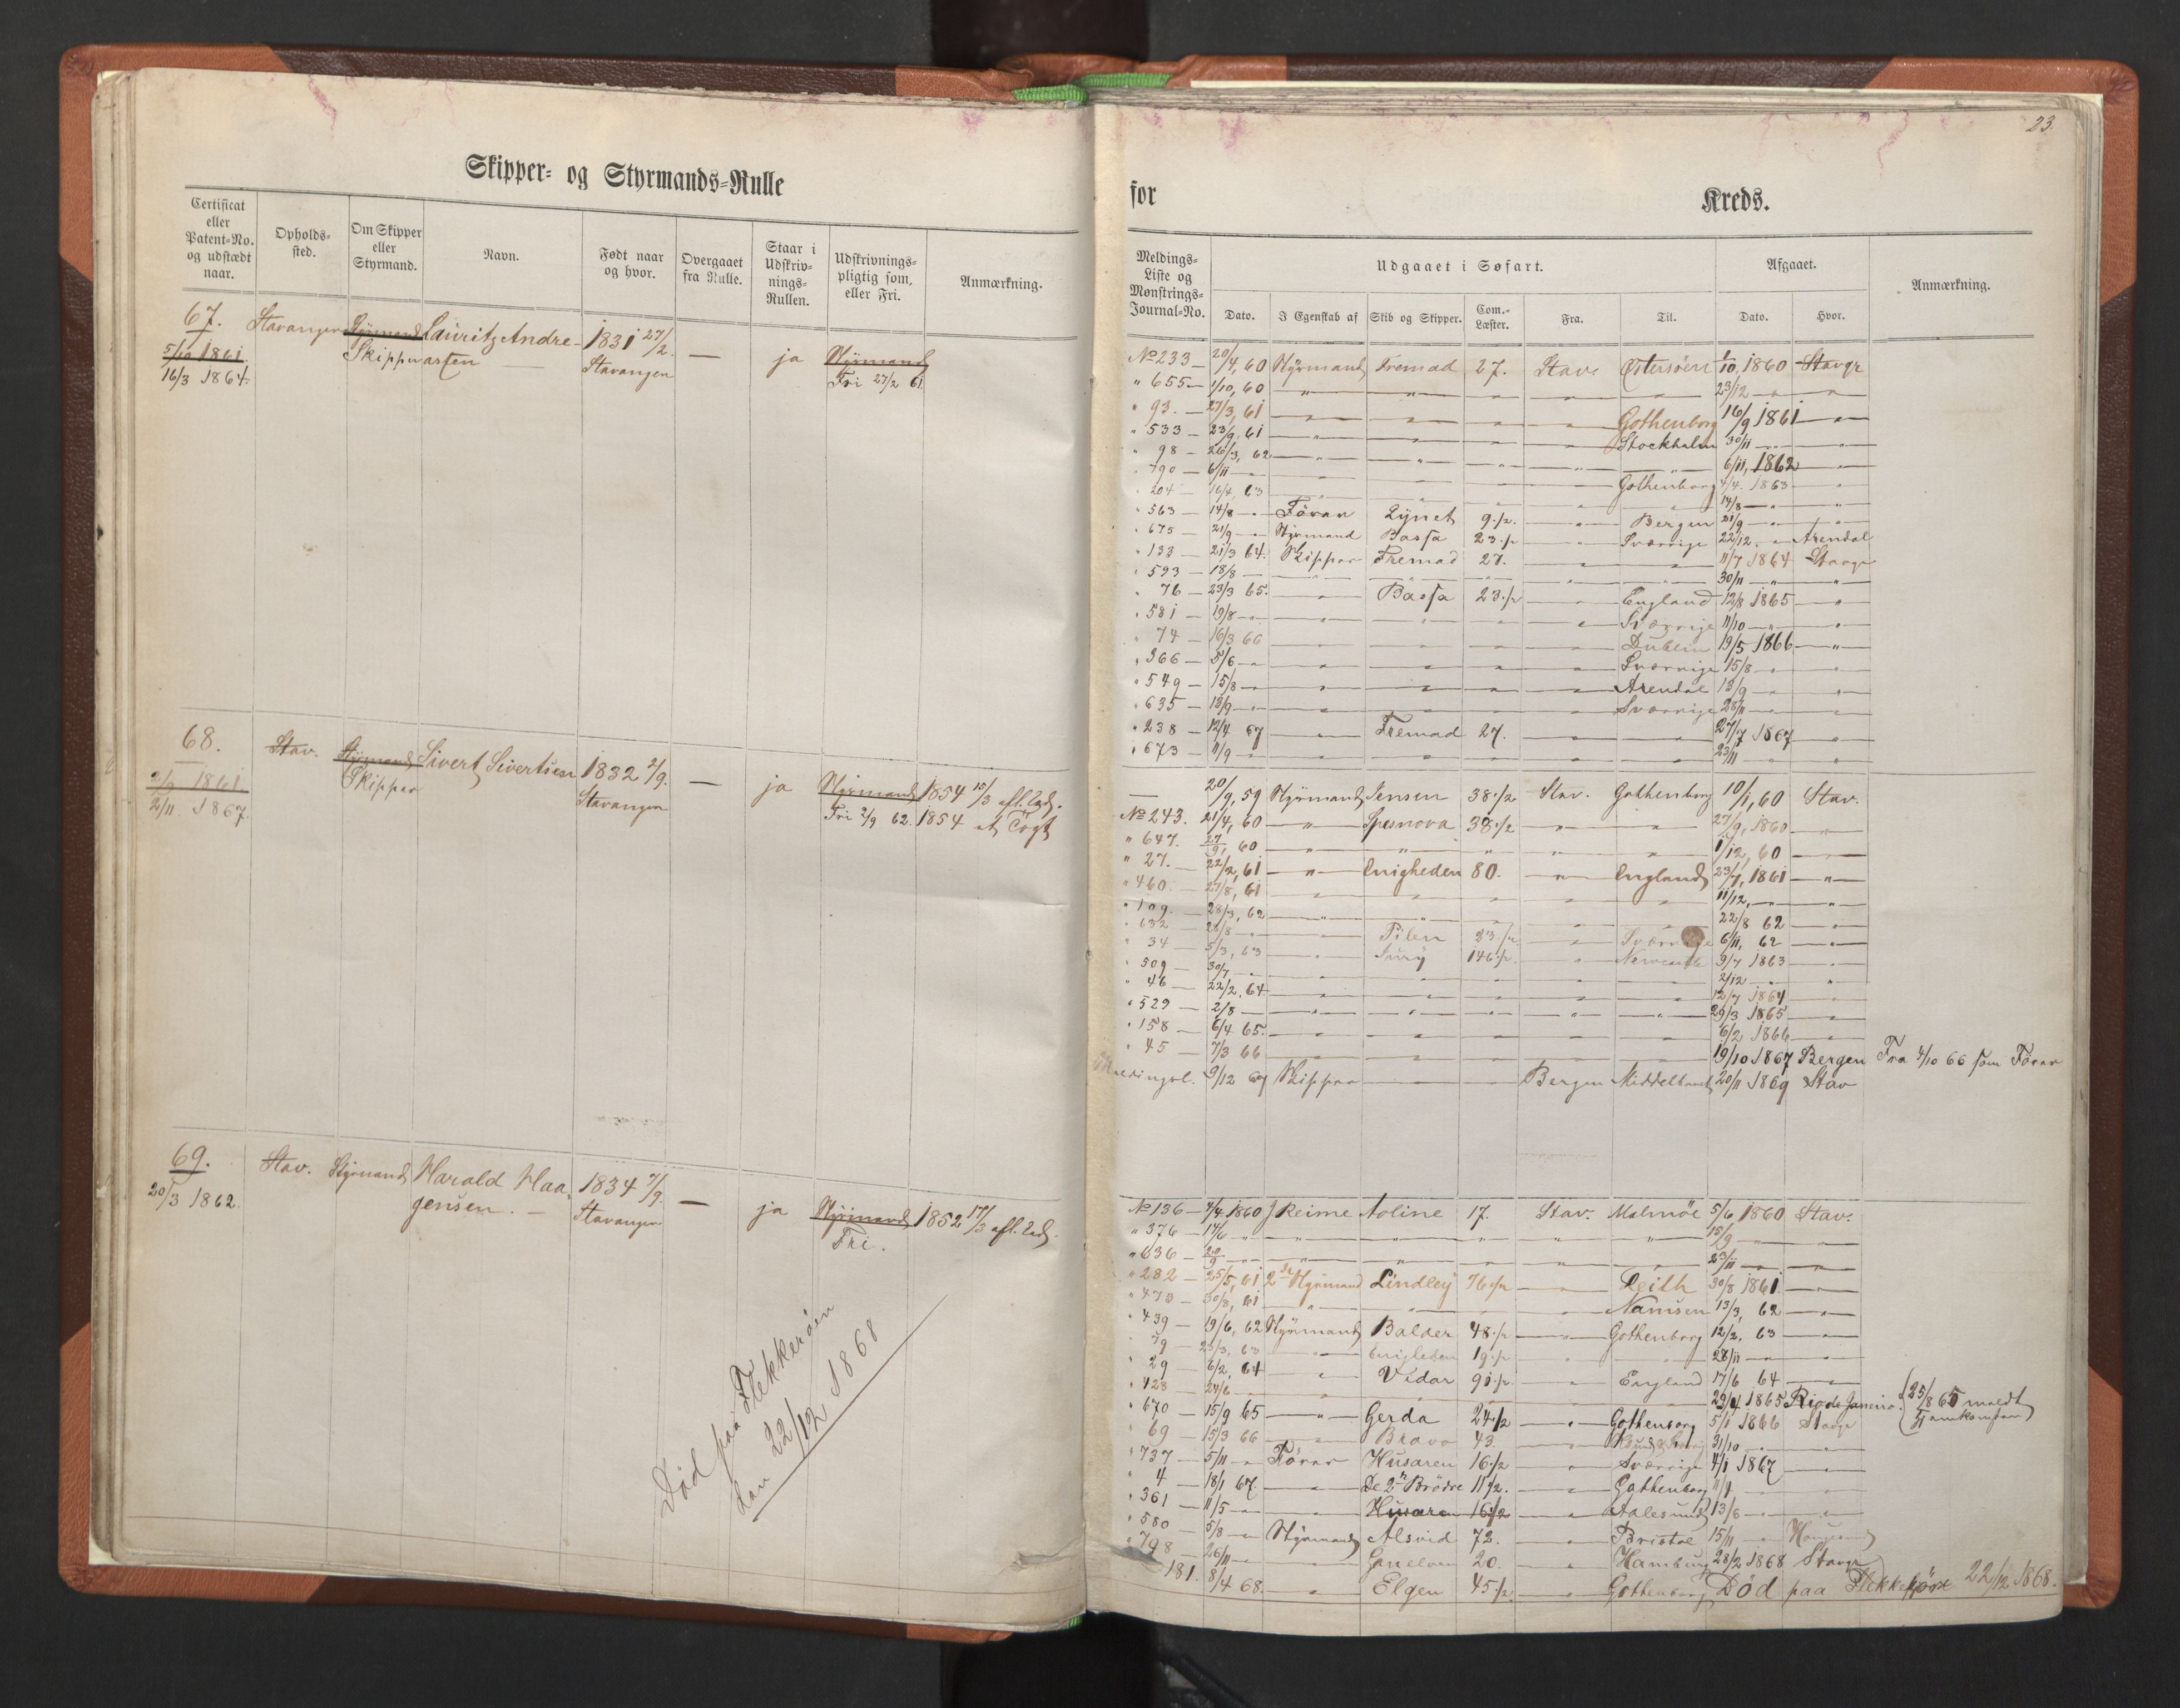 Skipper- og Styrmands-Rulle
Certificat eller Patent-No. og udstædt naar.
Opholdssted.
Om Skipper eller Styrmand.
Navn.
Født naar og hvor.
Overgaaet fra Rulle.
Staar i Udskrivnings-Rullen.
Udskrivningspligtig som, eller Fri.
Anmærkning.
67. Stavanger Styrmand Lauritz Andre- 1831 27/2. — ja Styrmand
5/10 1861 Skipper asen — Stavanger Fri 27/2 61.
16/3 1864.
68. Stav. Styrmand Sivert Sivertsen 1832 2/9. — ja Styrmand 1854 15/3 afl. Ed.
2/9 1861 Skipper Stavanger Fri 2/9 62. 1854 et Togt
2/11 1867.
69. Stav. Styrmand Harald Haa- 1834 7/9. — ja Styrmand 1852 17/3 afl. Ed.
20/3 1862. gensen. — Stavanger Fri.
Død paa Flekkerøen
den 22/12 1868
23.
for Kreds.
Meldings-Liste og Mønstrings-Journal-No.
Udgaaet i Søfart.
Afgaaet.
Anmærkning.
Dato. I Egenskab af Skib og Skipper. Com.-Læster. Fra. Til. Dato. Hvor.
No 233 — 20/4, 60 Styrmand Fremad 27. Stav. Østersøen 1/10, 1860 Stavgr
" 655 — 1/10, 60 " " " 23/12 " "
" 93. — 27/3, 61 " " " " Gothenborg 16/9 1861 "
" 533 — 23/9, 61 " " " " Stockholm 30/11 " "
" 98 — 26/3, 62 " " " " " 6/11, 1862 "
" 790 — 6/11 " " " " " Gothenborg 4/4 1863 "
" 204 — 16/4, 63 " " " " " 14/8 " "
" 563 — 14/8 " Förer Lynet 9 1/2. " Bergen 21/9 " "
" 675 — 21/9 " Styrmand Bassa 23 1/2 " Sverrige 22/12 " Arendal
" 133 — 21/3 64. Skipper Fremad 27. " " 11/7 1864 Stavgr
" 593 — 18/8 " " " " " " 30/11 " "
" 76 — 23/3 65. " Bassa 23 1/2 " England 12/8 1865 "
" 581 — 19/8 " " " " " Sverrige 11/10 " "
" 74 — 16/3 66 " " " " Dublin 19/5 1866 "
" 366 — 5/6 " " " " " Sverrige 15/8 " "
" 549 — 15/8 " " " " " Arendal 13/9 " "
" 635 — 13/9 " " " " " Sverrige 28/11 " "
" 238 — 12/4 67 " Fremad 27. " " 27/7 1867 "
" 673 — 11/9 " " " " " " 23/11 " "
— 20/9, 59 Styrmand Jensen 38 1/2 Stav. Gothenborg 10/1, 60 Stav.
No 243. 21/4, 60 " Spesnova 38 1/2 " " 27/9, 1860 "
" 647. 27/9, 60 " " " " " 1/12, 60 "
" 27. — 22/2, 61 " Enigheden 80. " England 23/7, 1861 "
" 460. 27/8, 61 " " " " " 11/12, " "
" 109. — 28/3, 62 " " " " " 22/8 62 "
" 632 — 22/8 " " Pilen 23 1/2 " Sverrige 6/11, 62 "
" 34 — 5/3, 63 " Jury 146 1/2. " Newcastle 9/7 1863 "
" 509 — 30/7 " " " " " " 2/12 " "
" 46 — 22/2. 64. " " " " " 12/7 1864 "
" 529 — 2/8 — " " " " " 29/3 1865 "
" 158 — 6/4 65. " " " " " 6/2 1866 "
" 45 — 7/3 66 " " " " " 19/10 1867 Bergen Fra 4/10 66 som Förer
Meldingsl. 9/12 67 Skipper " " Bergen Middelhavet 20/11 1869 Stav
No 136 — 4/4 1860 J Reime Noline 17. Stav. Malmöe 5/6 1860 Stav.
" 376 — 14/6 " " " " " " 15/9 " "
" 636 — 20/9 " " " " " " 23/11 " "
" 282 — 25/5, 61 2de Styrmand Lindley 76 1/2 " Leith 30/8 1861. "
" 473 — 30/8, 61 " " " " Namsen 13/3, 62 "
" 439 — 19/6, 62 Styrmand Balder 48 1/2 " Gothenborg 12/2. 63 "
" 79 — 25/3, 63 " Enigheden 19 1/2 " " 28/11 " "
" 29 — 6/2, 64 " Vidar 91 1/2 " England 17/6 64 "
" 428 — 24/6 " " " " " " 29/4 1865 Rio de Janeiro. {25/8 65 meldt Hjemkomsten}
" 670 — 15/9 65 " Gerda 24 1/2 " Gothenborg 5/1 1866 Stavgr
" 69 — 15/3 66 " Bravo 43. " 31/10 " "
" 737 — 5/11 " Förer Husaren 16 1/2 " Sverrige 4/1 1867 "
" 4 — 18/1 67. " De 2de Brödre 11 1/2. " Gothenborg " "
" 361 — 11/5 " " Husaren 16 1/2 " Aalesund 13/6 " "
" 580 — 5/8 " Styrmand Alsvid 72. " Bristol 15/11 " Haugesund
" 798 — 26/11 " " 20. " Hamburg 28/2 1868 Stavgr
" 181. 8/4 68. " Elgen 45 1/2. " Gothenborg Död paa Flekkerö 22/12 1868.